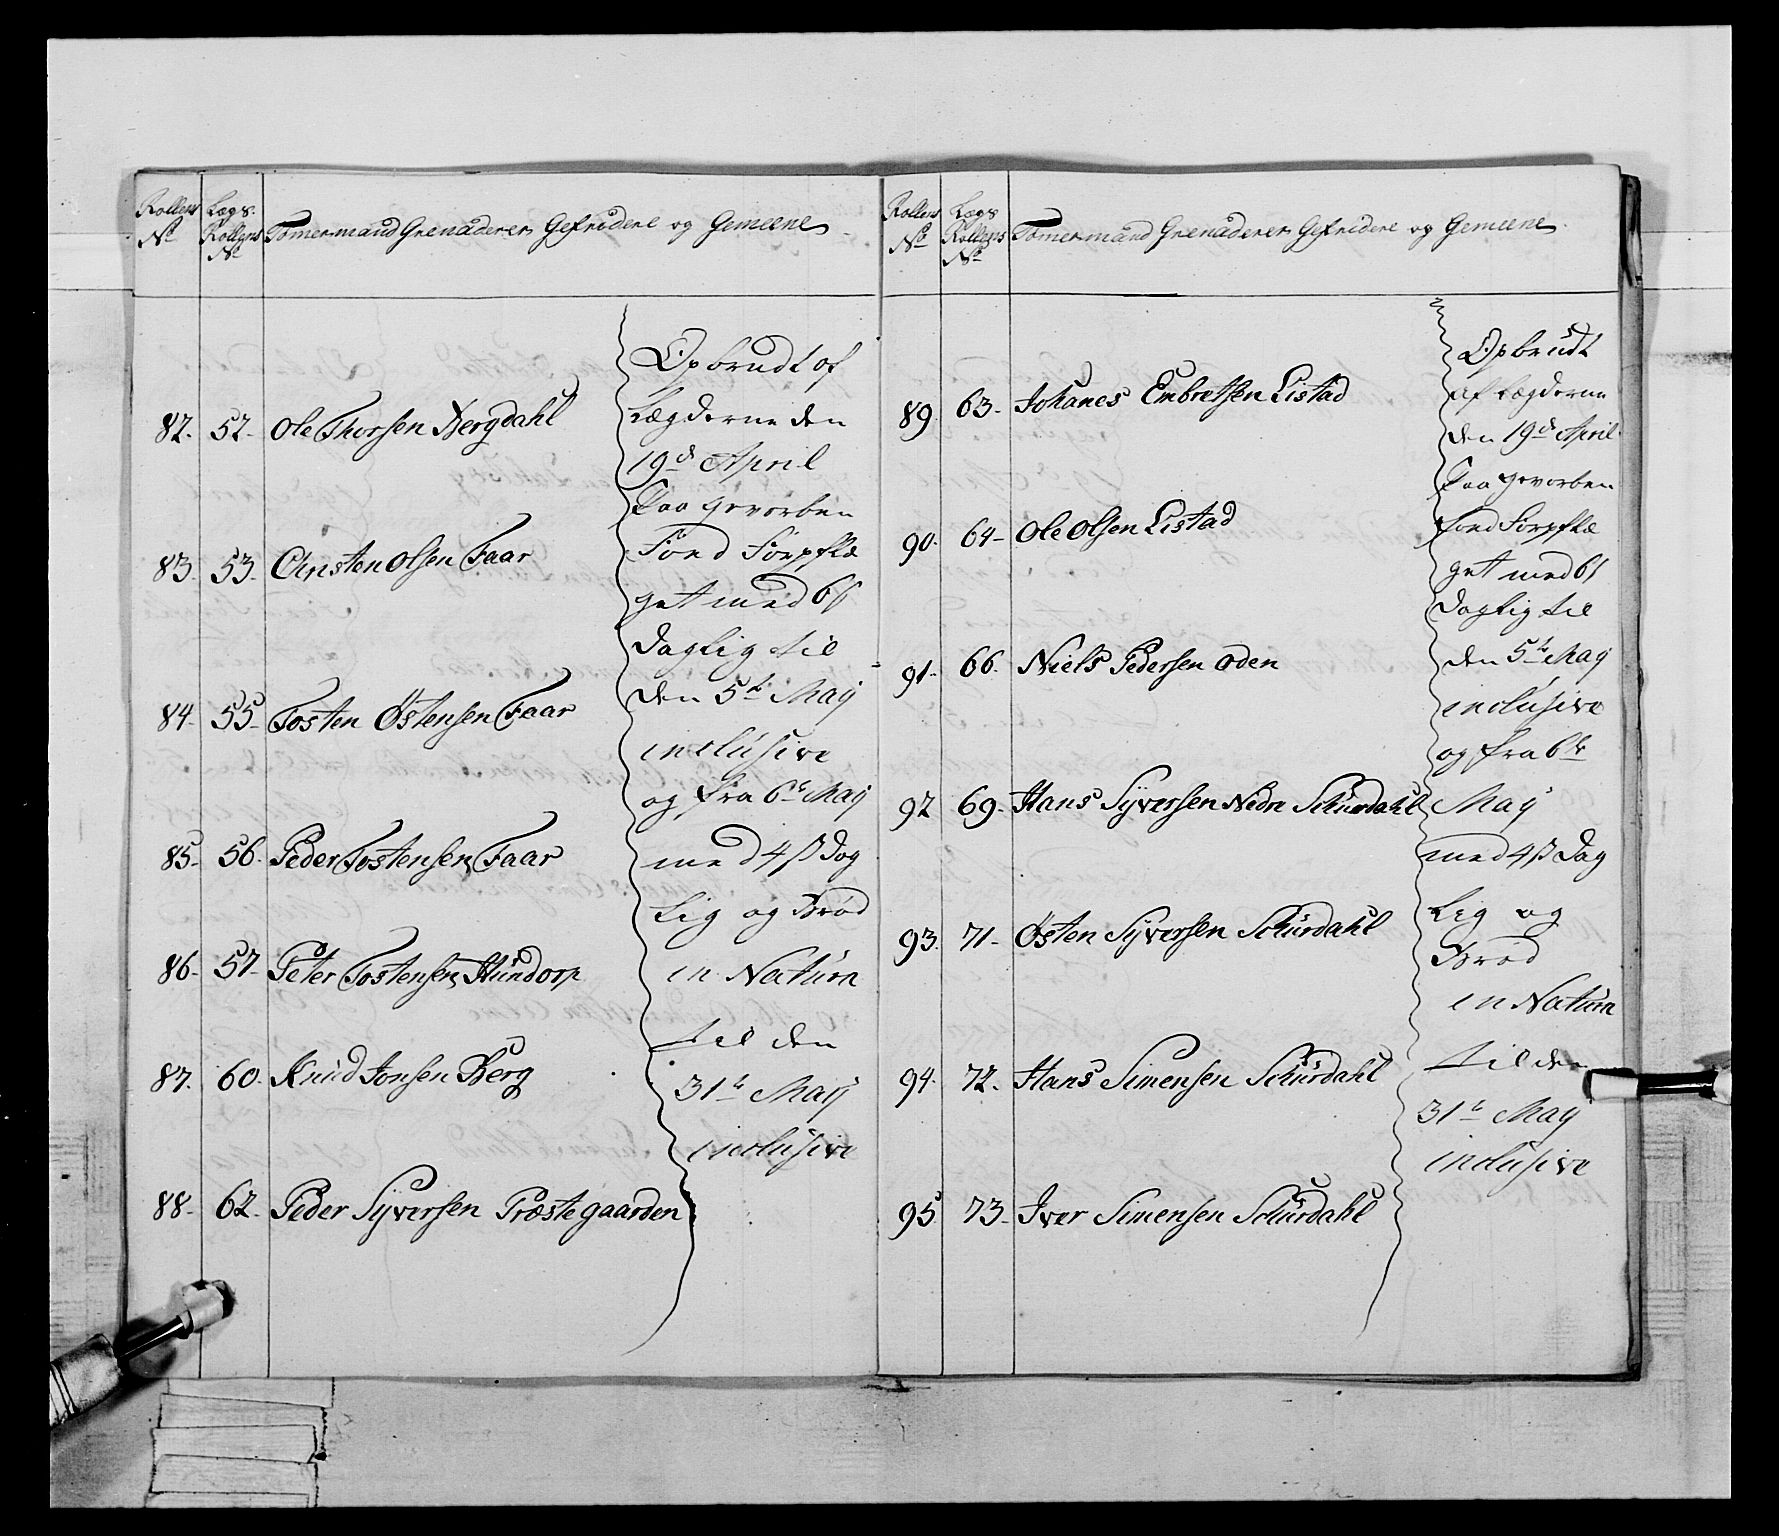 Rollens Lægs
No Rollens Tømermand Grenaderer Gefreidere og Gemeene
No
82. 52. Ole Thorsen Bergdahl
83. 53. Christen Olsen Faar
84. 55. Tosten Østensen Faar
85. 56. Peder Tostensen Faar
86. 57. Peter Tostensen Hundorp
87. 60. Knud Jonsen Berg
88. 62. Peder Syversen Præstegaarden
Opbrudt af
Lægderne den
19de April
Paa gevorben
Fond Forpflæ
get med 6ß
daglig til
den 5te May
inclusive
og fra 6te May
med 4ß dag
lig og Brød
in Natura
til den
31te May
inclusive
Rollens Lægs
No Rollens Tømermand Grenaderer Gefreidere og Gemeene
No
89. 63. Johanes Embretsen Listad
90. 64. Ole Olsen Listad
91. 66. Niels Pedersen Oden
92 69. Hans Syversen Nedre Schurdahl
93. 71. Østen Syversen Schurdahl
94. 72. Hans Simensen Schurdahl
95 73. Iver Simensen Schurdahl
Opbrudt
af Lægderne
den 19de April
Paa gevorben
fond Forpflæ
get med 6ß
daglig til
den 5te May
inclusive
og fra 6te
May
med 4ß dag
lig og
Brød
in Natura
til den
31te May
inclusive